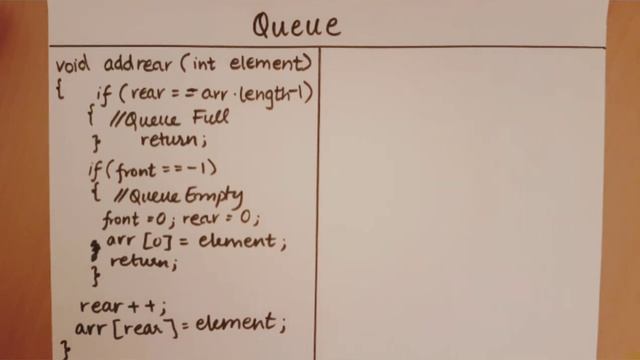 Queue
void addrear (int element)
{ if (rear == arr.length-1)
{ //Queue Full
} return;
if (front == -1)
{ //Queue Empty
front = 0; rear = 0;
arr [0] = element;
return;
}
rear++;
arr [rear] = element;
}